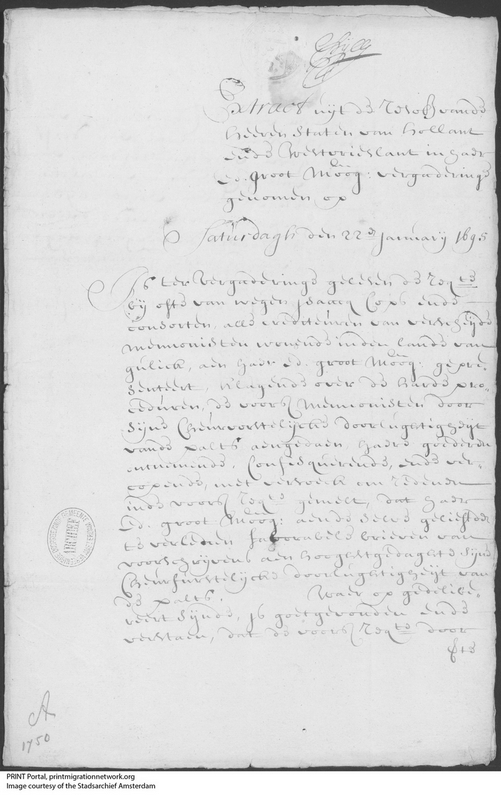 Extract uyt de Resol: vande
Heeren Staten van Hollant
ende Westvrieslant in haer
Ed. Groot Moog: vergaderinge
genomen op
Saturdagh den 22en January 1695
Is ter vergaderinge gelesen de Reqte
by ofte van wegen Isaacq Cops ende
consorten, alle crediteuren van verscheyde
Memonisten wonende inden lande van
Gulick, aen haer Ed. Groot Moog: gepre-
senteert, klagende over de harde pro-
ceduren, de voors. Memonisten door
Syne Cheurvorstelijcke Doorluchtigheyt
vande Palts aengedaen, haere goederen
ontnemende, Confisquerende, ende ver-
copende, met versoeck om redenen
inde voors. Reqte gemelt, dat haer
Ed. Groot Moog: aende selve geliefden
te verleenen favorabele brieven van
voorschryvens aen hooghstgedachte Syne
Cheurfurstelijcke Doorluchtigheyt van
de Palts. Waer op gedelibe-
reert Synde, Is goetgevonden ende
verstaen, dat de voors. Reqte door
A
1750
PRINT Portal, printmigrationnetwork.org
Image courtesy of the Stadsarchief Amsterdam